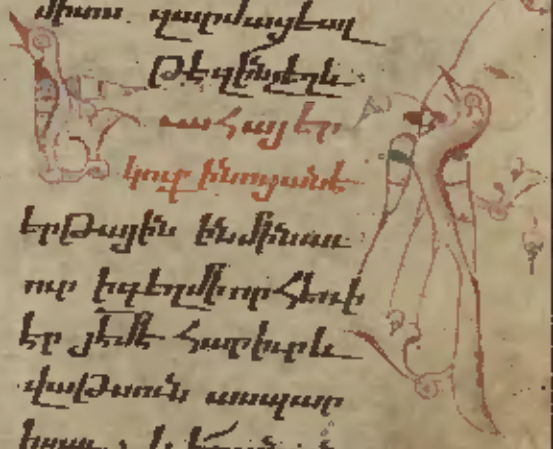 միտս. զարմացեալ
թէ զինչ եղև։
Եւ ահա եր
կուք ի նոցանէ
երթային ի նմին աւ
ուր ի գեղ մի որ հեռի
էր յեմէ հարիւր և
վաթսուն ասպար